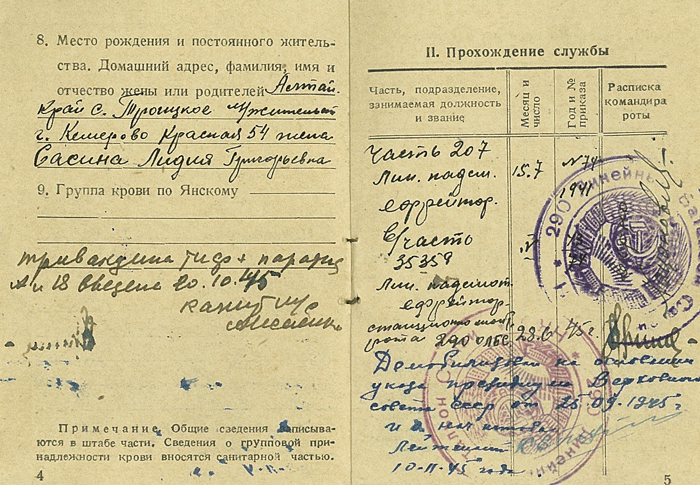 8. Место рождения и постоянного житель-
ства. Домашний адрес, фамилия, имя и
отчество жены или родителей Алтай.
край с. Троицкое м/жительст
г. Кемерово Красная 54 жена
Сасина Лидия Григорьевна
9. Группа крови по Янскому
тривакцина тиф + паратиф
А и В введена 20.10.45
капит м/с
Примечание. Общие сведения записыва-
ются в штабе части. Сведения о групповой при-
надлежности крови вносятся санитарной частью.
4
II. Прохождение службы
Часть, подразделение, занимаемая должность и звание
Месяц и число
Год и № приказа
Расписка командира роты
Часть 207 15.7 № 74
Лин. надсм. 1941
ефрейтор.
В/часть
35359
Лин. надсмот.
ефрейтор
рота 290 28.6 45г.
Демобилизован на основании
указа президиума Верховного
совета СССР от 25.09.1945г
Лейтенант
10-11-45 года
290
5